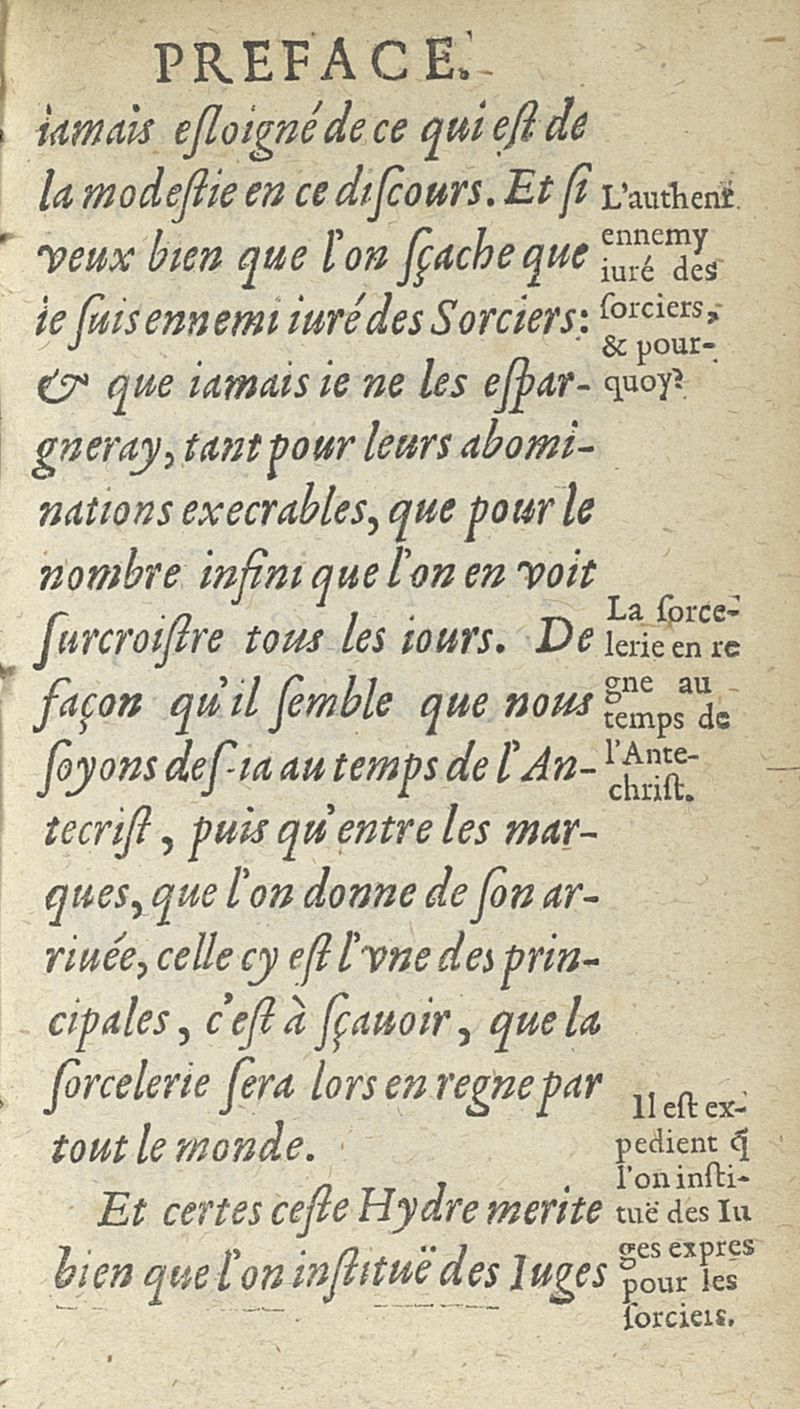 PREFACE.
iamais eſloigné de ce qui eſt de
la modeſtie en ce diſcours. Et ſi
veux bien que l'on ſçache que
ie ſuis ennemi iuré des Sorciers:
& que iamais ie ne les eſpar-
gneray, tant pour leurs abomi-
nations execrables, que pour le
nombre infini que l'on en voit
ſurcroiſtre tous les iours. De
façon qu'il ſemble que nous
ſoyons deſ-ia au temps de l'An-
tecriſt, puis qu'entre les mar-
ques, que l'on donne de ſon ar-
riuée, celle cy eſt l'vne des prin-
cipales, c'eſt à ſçauoir, que la
ſorcelerie ſera lors en regne par
tout le monde.
Et certes ceſte Hydre merite
bien que l'on inſtituë des Iuges
L'authent.
ennemy
iuré des
ſorciers,
& pour-
quoy?
La ſorce-
lerie en re
gne au
temps de
l'Ante-
chriſt.
Il eſt ex-
pedient q̃
l'on inſti-
tuë des Iu
ges expres
pour les
ſorciers.